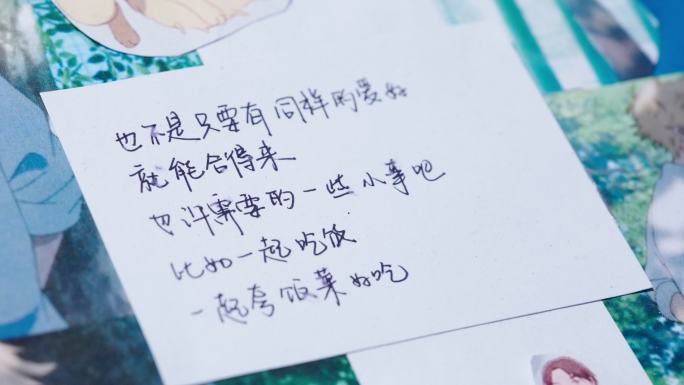 也不是只要有同样的爱好
就能合得来
也许需要的一些小事吧
比如一起吃饭
一起夸饭菜好吃